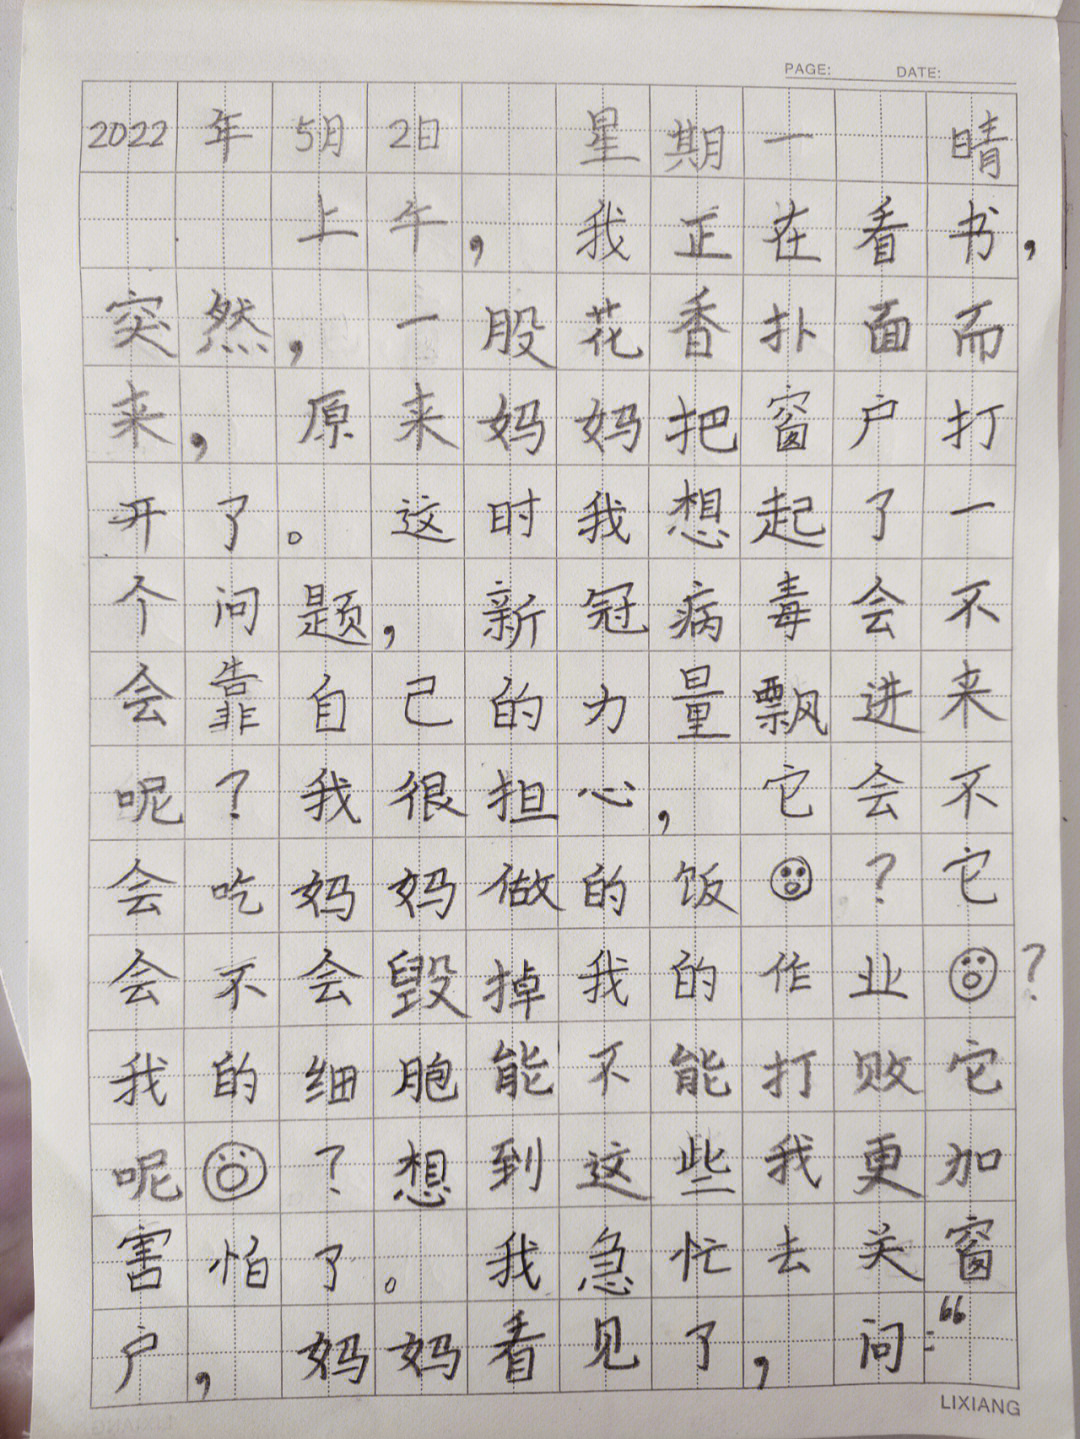 PAGE: DATE:
2022年5月2日 星期一 晴
上午，我正在看书，
突然，一股花香扑面而
来，原来妈妈把窗户打
开了。这时我想起了一
个问题，新冠病毒会不
会靠自己的力量飘进来
呢？我很担心，它会不
会吃妈妈做的饭😮？它
会不会毁掉我的作业😮？
我的细胞能不能打败它
呢😮？想到这些我更加
害怕了。我急忙去关窗
户，妈妈看见了，问：“
LIXIANG